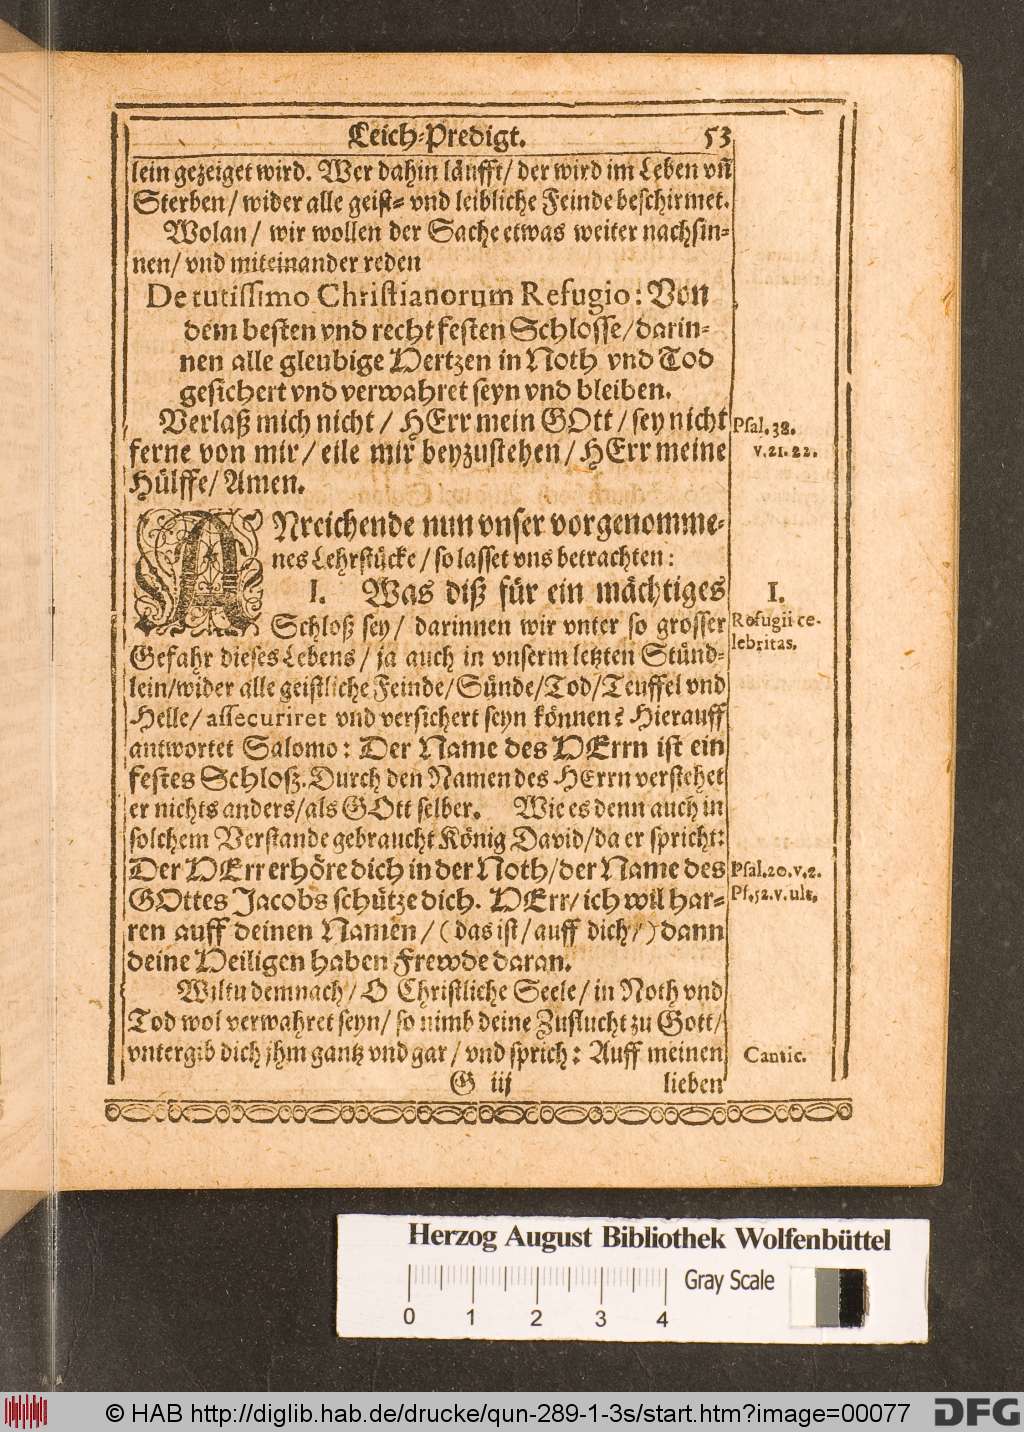 Leich-Predigt. 53
lein gezeiget wird. Wer dahin läufft/ der wird im Leben vñ
Sterben/ wider alle geist- vnd leibliche Feinde beschirmet.
Wolan/ wir wollen der Sache etwas weiter nachsin-
nen/ vnd miteinander reden
De tutissimo Christianorum Refugio: Von
dem besten vnd recht festen Schlosse/ darin-
nen alle gleubige Hertzen in Noth vnd Tod
gesichert vnd verwahret seyn vnd bleiben.
Verlaß mich nicht/ HErr mein GOtt/ sey nicht
Psal. 38.
ferne von mir/ eile mir beyzustehen/ HErr meine
v. 21. 22.
Hülffe/ Amen.
ANreichende nun vnser vorgenomme-
nes Lehrstücke/ so lasset vns betrachten:
I. Was diß für ein mächtiges
I.
Schloß sey/ darinnen wir vnter so grosser
Refugii ce-
lebritas.
Gefahr dieses Lebens/ ja auch in vnserm letzten Stünd-
lein/wider alle geistliche Feinde/Sünde/Tod/Teuffel vnd
Helle/ assecuriret vnd versichert seyn können? Hierauff
antwortet Salomo: Der Name des HErrn ist ein
festes Schloß. Durch den Namen des HErrn verstehet
er nichts anders/als GOtt selber. Wie es denn auch in
solchem Verstande gebraucht König David/da er spricht:
Der HErr erhöre dich in der Noth/der Name des
Psal. 20. v. 2.
GOttes Jacobs schütze dich. HErr/ ich wil har-
Ps. 52. v. ult.
ren auff deinen Namen/ (das ist/ auff dich/) dann
deine Heiligen haben Frewde daran.
Wiltu demnach/ O Christliche Seele/ in Noth vnd
Tod wol verwahret seyn/ so nimb deine Zuflucht zu Gott/
vntergib dich jhm gantz vnd gar/ vnd sprich: Auff meinen
Cantic.
G iij lieben
Herzog August Bibliothek Wolfenbüttel
Gray Scale
0 1 2 3 4
© HAB http://diglib.hab.de/drucke/qun-289-1-3s/start.htm?image=00077
DFG